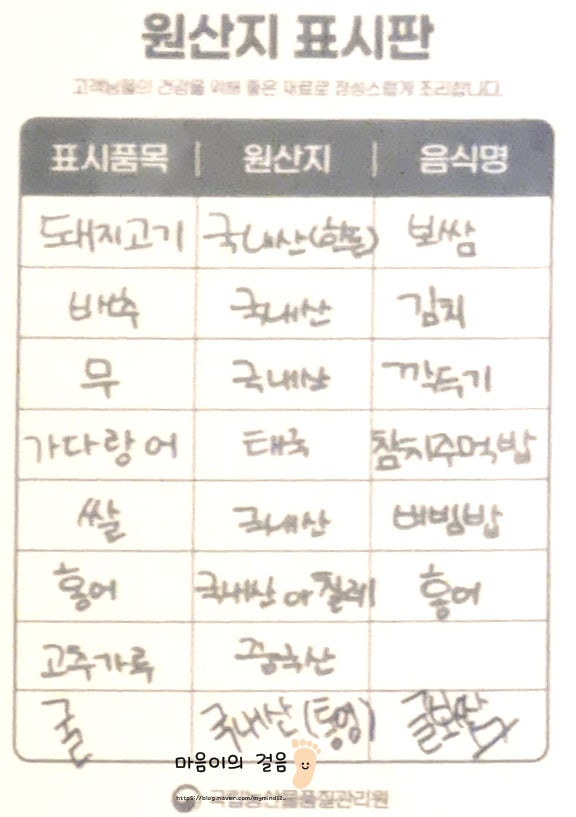 원산지 표시판
고객님들의 건강을 위해 좋은 재료로 정성스럽게 조리합니다.
표시품목 | 원산지 | 음식명
돼지고기 국내산(한돈) 보쌈
배추 국내산 김치
무 국내산 깍두기
가다랑어 태국 참치주먹밥
쌀 국내산 비빔밥
홍어 국내산 아 칠레 홍어
고추가루 중국산
굴 국내산 (통영) 굴보쌈
마음이의 걸음
http://blog.naver.com/mymind12..
국립농산물품질관리원